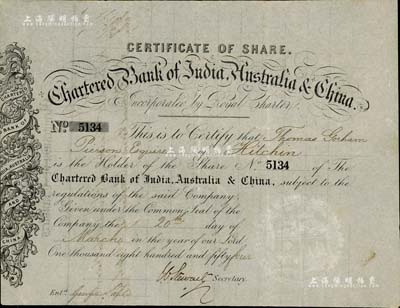 上海阳明拍卖
CERTIFICATE OF SHARE.
Chartered Bank of India, Australia & China.
Incorporated by Royal Charter.
No 5134 This is to Certify that Thomas
Esquire Hitchin
is the Holder of the Share No 5134 of The
Chartered Bank of India, Australia & China, subject to the
regulations of the said Company.
Given under the Common Seal of the
Company, the 20th day of
March in the year of our Lord
One thousand eight hundred and fifty four
Secretary.
Entd.
CHARTERED
BANK OF
INDIA
AUSTRALIA
AND
CHINA